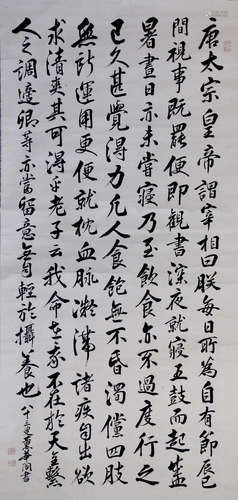 唐太宗皇帝謂宰相曰朕每日所為自有節辰
間視事既罷便即觀書深夜就寢五鼓而起盛
暑晝日亦未嘗寢乃至飲食亦不過度行之
已久甚覺得力凡人食飽無不昏濁儻四肢
無所運用更便就枕血脈凝滯諸疾自出欲
求清爽其可得乎老子云我命在我不在於天繫
人之調適卿等亦當留意無輕於攝養也